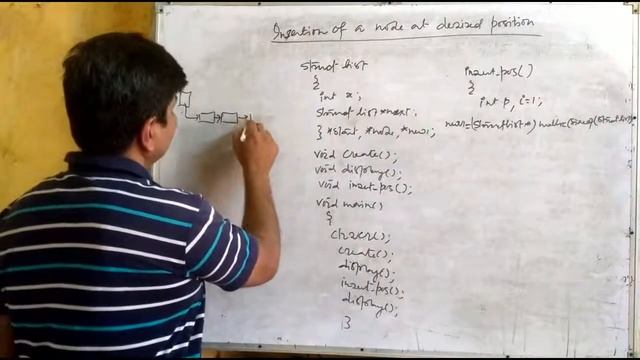 Insertion of a node at desired position
struct list
{
int x;
struct list *next;
} *start, *node, *new1;
void create();
void display();
void insert_pos();
void main()
{
clrscr();
create();
display();
insert_pos();
display();
}
insert_pos()
{
int p, i=1;
new1=(struct list *) malloc(sizeof(struct list));